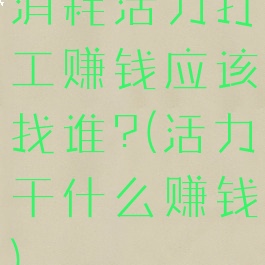 消耗活力打
工赚钱应该
找谁?(活力
干什么赚钱
)